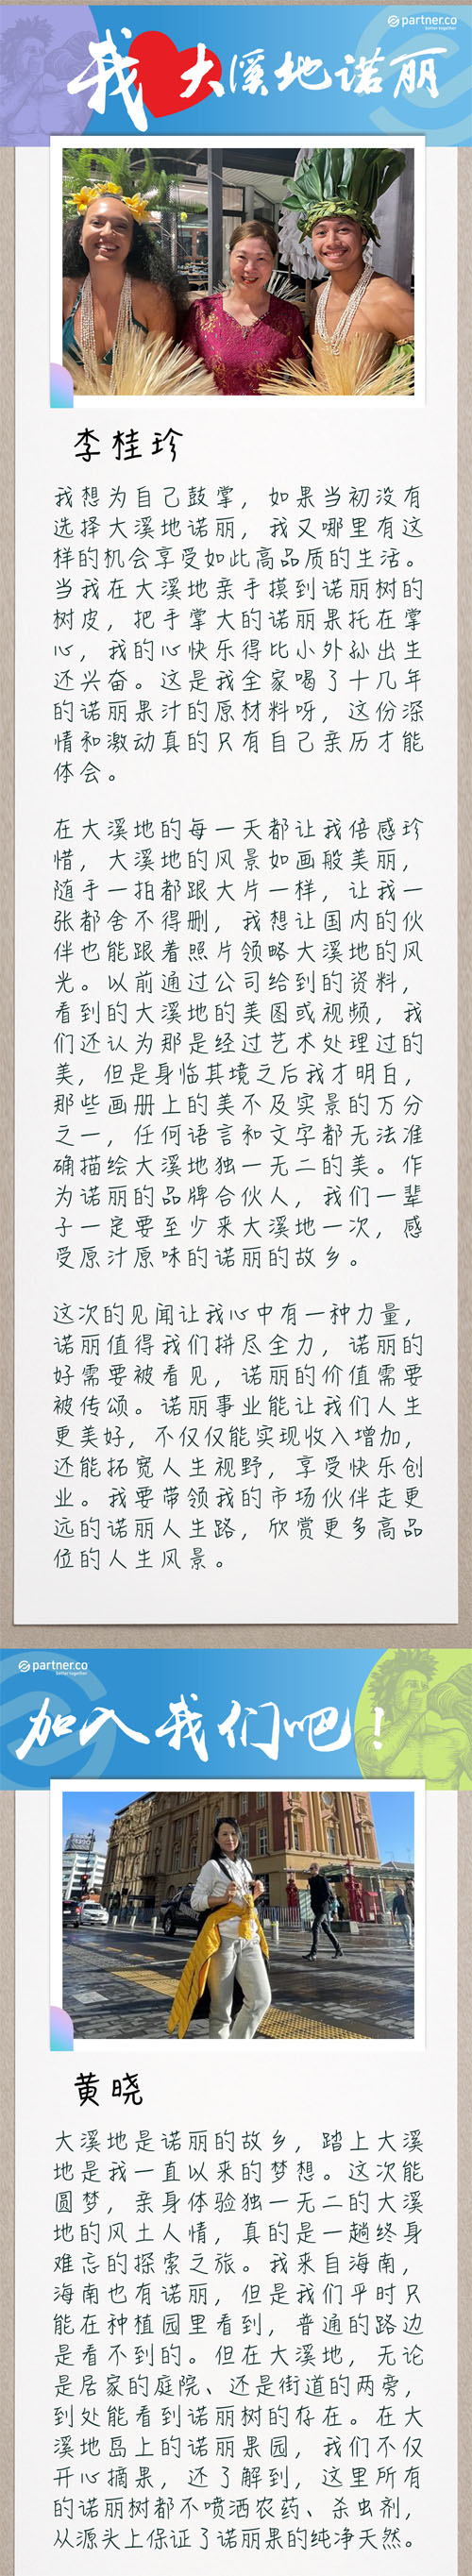 partner.co
better together
我大溪地诺丽
李桂珍
我想为自己鼓掌，如果当初没有
选择大溪地诺丽，我又哪里有这
样的机会享受如此高品质的生活。
当我在大溪地亲手摸到诺丽树的
树皮，把手掌大的诺丽果托在掌
心，我的心快乐得比小外孙出生
还兴奋。这是我全家喝了十几年
的诺丽果汁的原材料呀，这份深
情和激动真的只有自己亲历才能
体会。
在大溪地的每一天都让我倍感珍
惜，大溪地的风景如画般美丽，
随手一拍都跟大片一样，让我一
张都舍不得删，我想让国内的伙
伴也能跟着照片领略大溪地的风
光。以前通过公司给到的资料，
看到的大溪地的美图或视频，我
们还认为那是经过艺术处理过的
美，但是身临其境之后我才明白，
那些画册上的美不及实景的万分
之一，任何语言和文字都无法准
确描绘大溪地独一无二的美。作
为诺丽的品牌合伙人，我们一辈
子一定要至少来大溪地一次，感
受原汁原味的诺丽的故乡。
这次的见闻让我心中有一种力量，
诺丽值得我们拼尽全力，诺丽的
好需要被看见，诺丽的价值需要
被传颂。诺丽事业能让我们人生
更美好，不仅仅能实现收入增加，
还能拓宽人生视野，享受快乐创
业。我要带领我的市场伙伴走更
远的诺丽人生路，欣赏更多高品
位的人生风景。
partner.co
better together
加入我们吧！
黄晓
大溪地是诺丽的故乡，踏上大溪
地是我一直以来的梦想。这次能
圆梦，亲身体验独一无二的大溪
地的风土人情，真的是一趟终身
难忘的探索之旅。我来自海南，
海南也有诺丽，但是我们平时只
能在种植园里看到，普通的路边
是看不到的。但在大溪地，无论
是居家的庭院、还是街道的两旁，
到处能看到诺丽树的存在。在大
溪地岛上的诺丽果园，我们不仅
开心摘果，还了解到，这里所有
的诺丽树都不喷洒农药、杀虫剂，
从源头上保证了诺丽果的纯净天然。